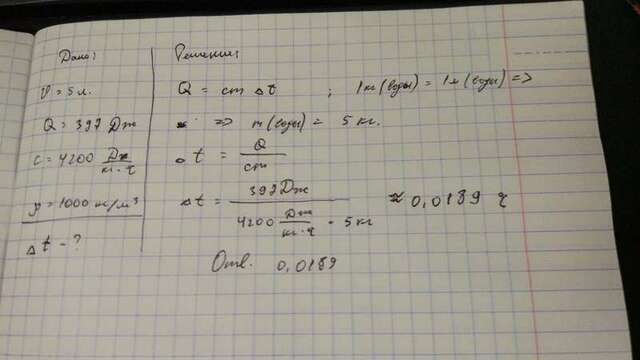 Дано:
V = 5 л.
Q = 397 Дж
c = 4200 Дж/кг·ч
ρ = 1000 кг/м³
Δt - ?
Решение:
Q = cm Δt ; 1кг(воды) = 1л(воды) =>
=> m(воды) = 5 кг.
Δt = Q/cm
Δt = 397Дж / 4200 Дж/кг·ч · 5кг ≈ 0,0189 ч
Отв. 0,0189